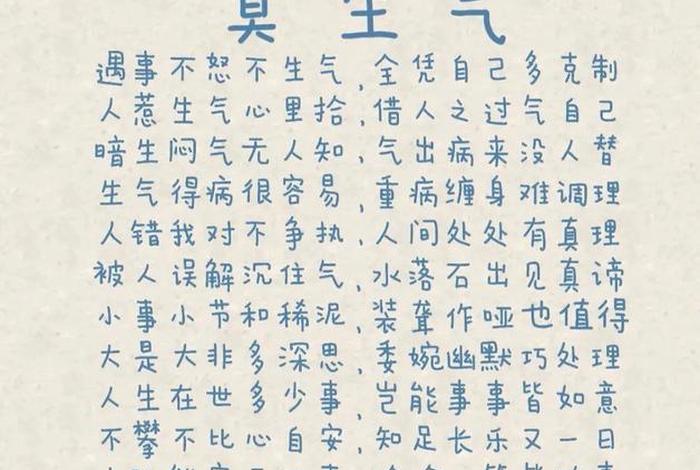 莫生气
遇事不怒不生气,全凭自己多克制
人惹生气心里拾,借人之过气自己
暗生闷气无人知,气出病来没人替
生气得病很容易,重病缠身难调理
人错我对不争执,人间处处有真理
被人误解沉住气,水落石出见真谛
小事小节和稀泥,装聋作哑也值得
大是大非多深思,委婉幽默巧处理
人生在世多少事,岂能事事皆如意
不攀不比心自安,知足长乐又一日